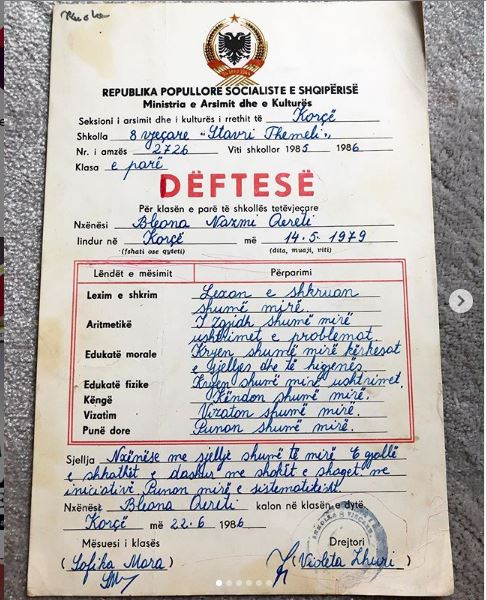 REPUBLIKA POPULLORE SOCIALISTE E SHQIPËRISË
Ministria e Arsimit dhe e Kulturës
Seksioni i arsimit dhe i kulturës i rrethit të Korçë
Shkolla 8 vjeçare "Stavri Themeli"
Nr. i amzës 2726 Viti shkollor 1985 1986
Klasa e parë
DËFTESË
Për klasën e parë të shkollës tetëvjeçare
Nxënësi Bleona Nazmi Qereti
lindur në Korçë më 14.5.1979
(fshati ose qyteti) (dita, muaji, viti)
Lëndët e mësimit Përparimi
Lexim e shkrim Lexon e shkruan
shumë mirë.
Aritmetikë I zgjidh shumë mirë
ushtrimet e problemat.
Edukatë morale Kryen shumë mirë kërkesat
e sjelljes dhe të higjenës
Edukatë fizike Kryen shumë mirë ushtrimet.
Këngë Këndon shumë mirë.
Vizatim Vizaton shumë mirë.
Punë dore Punon shumë mirë.
Sjellja Nxënëse me sjellje shumë të mirë E gjallë
e shkathët e dashur me shokët e shoqet me
iniciativë. Punon mirë e sistematikisht
Nxënësi Bleona Qereti kalon në klasën e dytë.
Korçë më 22.6.1986
Mësuesi i klasës Drejtori
(Sofika Mara) (Violeta Zhuri)